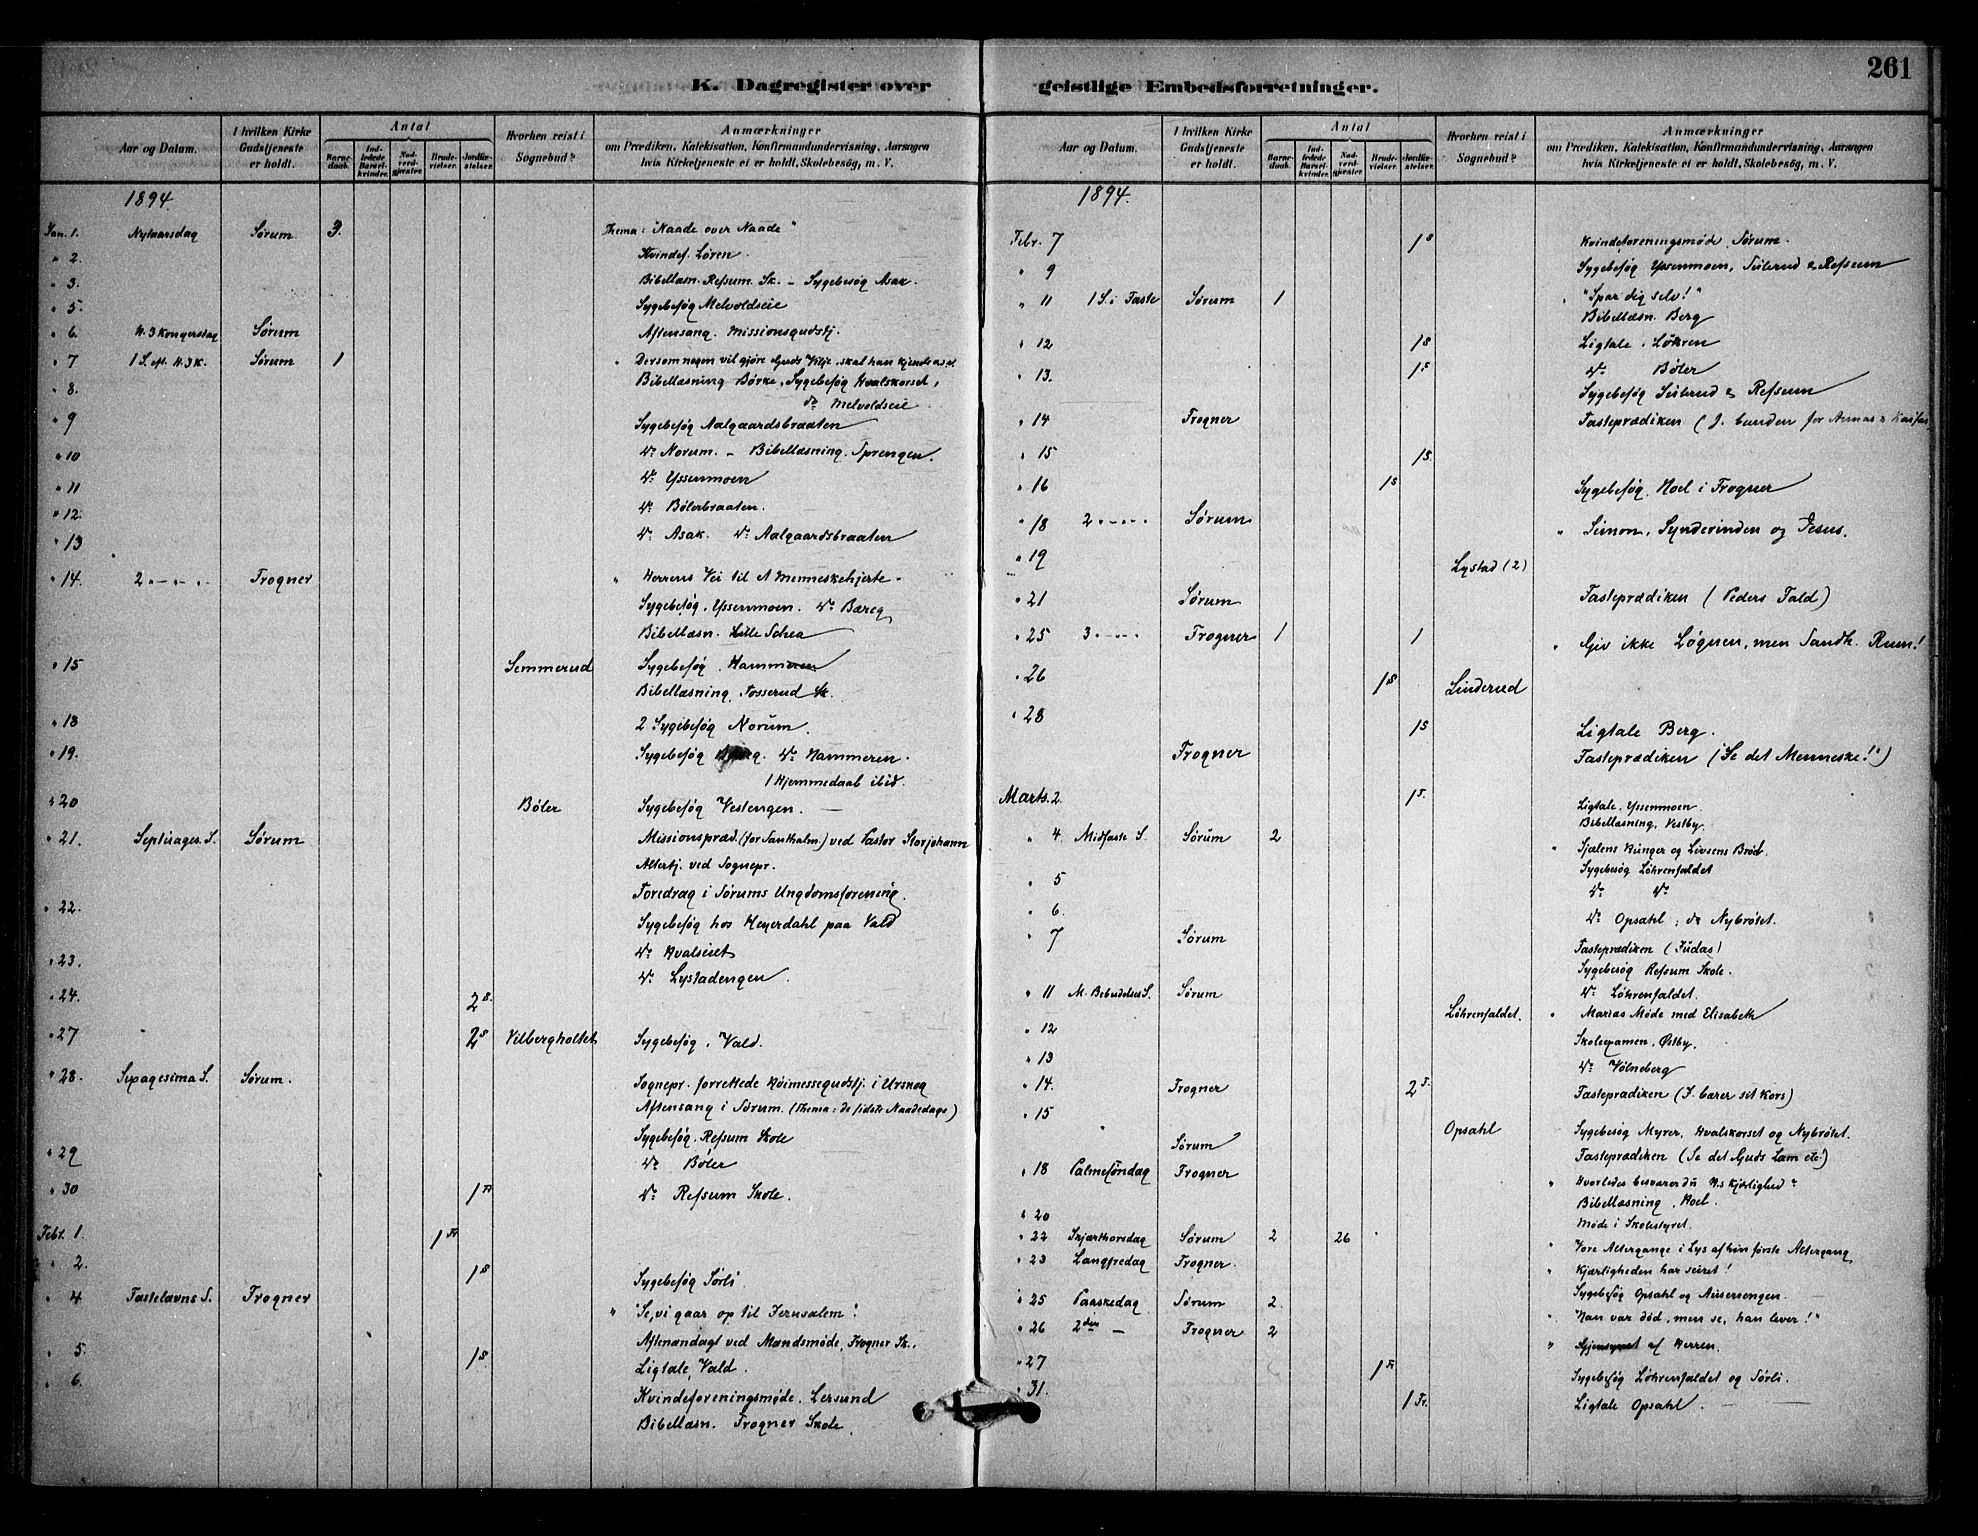 261
K. Dagregister over
Aar og Datum.
I hvilken Kirke Gudstjeneste er holdt.
Antal
Barnedaab.
Indledede Barselkvinder.
Nadverdgjester.
Brudevielser.
Jordfæstelser.
Hvorhen reist i Sognebud?
Anmærkninger
om Prædiken, Katekisation, Konfirmandundervisning, Aarsagen
hvis Kirketjeneste ei er holdt, Skolebesøg, m. V.
1894.
Jan. 1. Nytaarsdag Sørum 3. Thema: "Naade over Naade"
" 2. Kvindef. Løren
" 3. Bibellæsn. Refsum Sk. – Sygebesøg Asak.
" 5. Sygebesøg Melvoldseie
" 6. H. 3 Kongersdag Sørum Aftensang. Missionsgudstj.
" 7 1 S. eft. H. 3 K. Sørum 1 " Dersom nogen vil gjøre Guds Vilje, skal han kjende
" 8. Bibellæsning Børke, Sygebesøg Hvalskorset,
do Melvoldseie
" 9 Sygebesøg Aalgaardsbraaten
" 10 do Norum. – Bibellæsning. Sprengen.
" 11 do Yssenmoen
" 12. do Bølerbraaten.
" 13 do Asak. do Aalgaardsbraaten
" 14. 2 " – " – " Frogner " Herrens Vei til et Menneskehjerte
Sygebesøg, Yssenmoen. do Bæreg
Bibellæsn. Lille Schea
" 15 Semmerud Sygebesøg, Hammeren
Bibellæsning, Fosserud Sk.
" 18 2 Sygebesøg Norum.
" 19. Sygebesøg do Hammeren.
1 Hjemmedaab ibid.
" 20 Bøler Sygebesøg Vestengen.
" 21. Septuages. S. Sørum Missionspræd. (for Santhalm.) ved Pastor Storjohann
Altertj. ved Sognepr.
Foredrag i Sørums Ungdomsforening.
" 22. Sygebesøg hos Heyerdahl paa Vald
do Hvalseiet
" 23. do Lystadengen
" 24. 2 S.
" 27 2 S Vilbergholtet Sygebesøg, Vald.
" 28. Sexagesima S. Sørum. Sognepr. forrettede Høimessegudstj. i Urskog
Aftensang i Sørum. (Thema: de sidste Naadedage)
Sygebesøg. Refsum Skole
" 29 do Bøler
" 30 1 Fr do Refsum Skole.
Febr. 1. 1 Fr
" 2. 1 S Sygebesøg Sørli
" 4 Fastelavns S. Frogner " "Se, vi gaar op til Jerusalem".
Aftenandagt ved Mandsmøde, Frogner Sk.
" 5. 1 S. Ligtale, Vald.
" 6. Kvindeforeningsmøde. Lersund
Bibellæsn. Frogner Skole.
geistlige Embedsforretninger.
Aar og Datum.
I hvilken Kirke Gudstjeneste er holdt.
Antal
Barnedaab.
Indledede Barselkvinder.
Nadverdgjester.
Brudevielser.
Jordfæstelser.
Hvorhen reist i Sognebud?
Anmærkninger
om Prædiken, Katekisation, Konfirmandundervisning, Aarsagen
hvis Kirketjeneste ei er holdt, Skolebesøg, m. V.
1894.
Febr. 7 1 S Kvindeforeningsmøde, Sørum.
" 9 Sygebesøg Yssenmoen, Seilerud & Refsum
" 11 1 S. i Faste Sørum 1 "Spar dig selv!"
Bibellæsn. Berg
" 12 1 S Ligtale. Løhren
" 13. 1 S do Bøler
Sygebesøg Seilerud & Refsum
" 14 Frogner Fasteprædiken (J. bunden for Annas &
" 15 1 S.
" 16 1 S Sygebesøg, Hoel i Frogner
" 18 2 " – " – " Sørum " Simon, Synderinden og Jesus.
" 19 Lystad (2)
" 21 Sørum Fasteprædiken (Peders Fald)
" 25 3 " – " – " Frogner 1 1 " Giv ikke Løgnen, men Sandh. Rum!
" 26 1 S Linderud
" 28 1 S Ligtale Berg.
Frogner Fasteprædiken ("Se det Menneske!")
Marts. 2. 1 S. Ligtale. Yssenmoen
Bibellæsning, Vestby.
" 4 Midfaste S. Sørum 2 " Sjælens Hunger og Livsens Brød.
Sygebesøg Løhrenfaldet
" 5 do do
" 6. do Opsahl, do Nybrøtet.
" 7 Sørum Fasteprædiken (Judas)
Sygebesøg Refsum Skole.
" 11 M. Bebudelses S. Sørum do Løhrenfaldet.
Løhrenfaldet. " Marias Møde med Elisabeth
" 12 Skoleexamen, Østby.
" 13 do Vølneberg
" 14. Frogner 2 S. Fasteprædiken (J. bærer sit Kors)
" 15 Opsahl Sygebesøg Myrer, Hvalskorset og Nybrøtet.
Sørum Fasteprædiken (Se det Guds Lam etc!)
" 18 Palmesøndag Frogner " Hvorledes besvarer du H.s Kjærlighed?
Bibellæsning, Hoel.
" 20 Møde i Skolestyret.
" 22 Skjærthorsdag Sørum 2 26 " Vore Altergange i Lys af hin første Altergang
" 23 Langfredag Frogner. " Kjærligheden har seiret!
Sygebesøg Opsahl og
" 25 Paaskedag Sørum 2. " "Han var død, men se, han lever!"
" 26 2den – Frogner 2 " af Herren.
" 27 1 Fr Sygebesøg Løhrenfaldet og Sørli.
" 31. 1 Fr. Ligtale Opsahl.